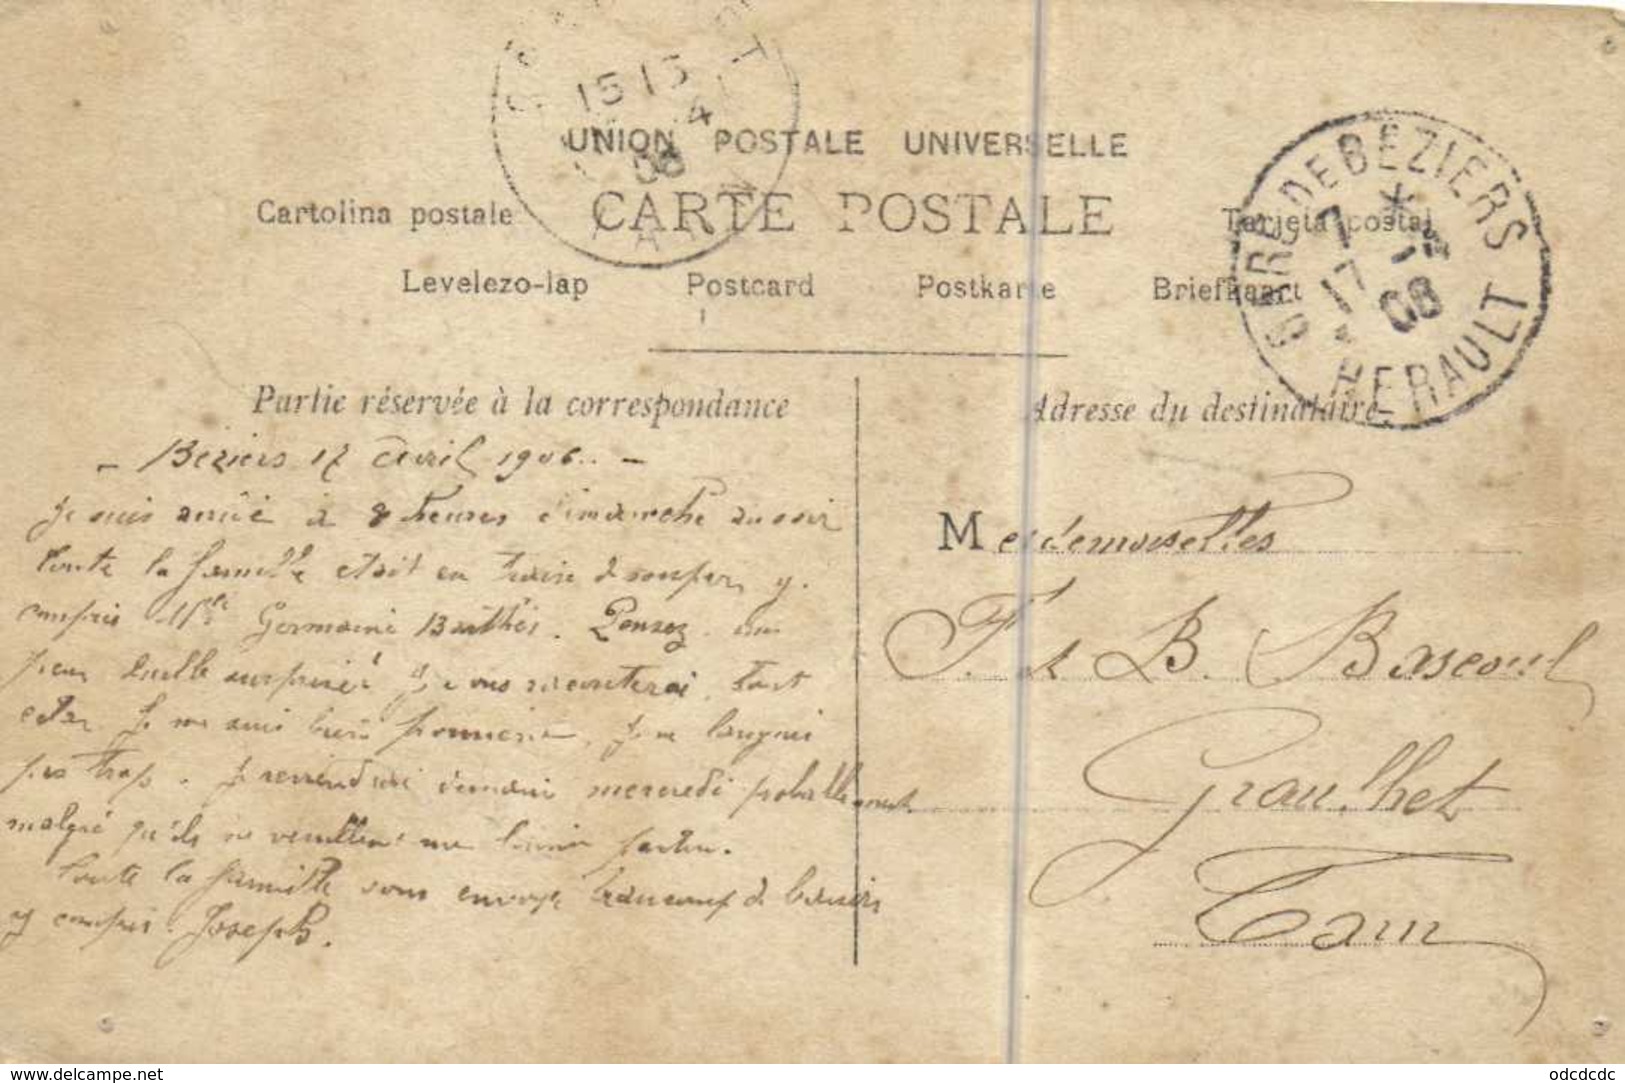 15 15
4
06
UNION POSTALE UNIVERSELLE
CARTE POSTALE
Cartolina postale
Tarjeta postal
Levelezo-lap Postcard Postkarte Briefkaart
GARE DE BEZIERS
7
17 -4
06
HERAULT
Partie réservée à la correspondance
Adresse du destinataire
- Béziers 17 Avril 1906. -
Je suis arrivé à 8 heures dimanche au soir
toute la famille était en train de souper, y
compris Mlle Germaine Barthès. Pensez un
peu quelle surprise! Je vous raconterai tout
cela. Je me suis bien promené, je ne languis
pas trop. Je reviendrai demain mercredi probablement
malgré qu'ils ne veuillent me laisser partir.
Toute la famille vous envoye beaucoup de baisers
y compris Joseph.
Mesdemoiselles
F. et B. Bascoul
Graulhet
Tarn
www.delcampe.net
odcdcdc